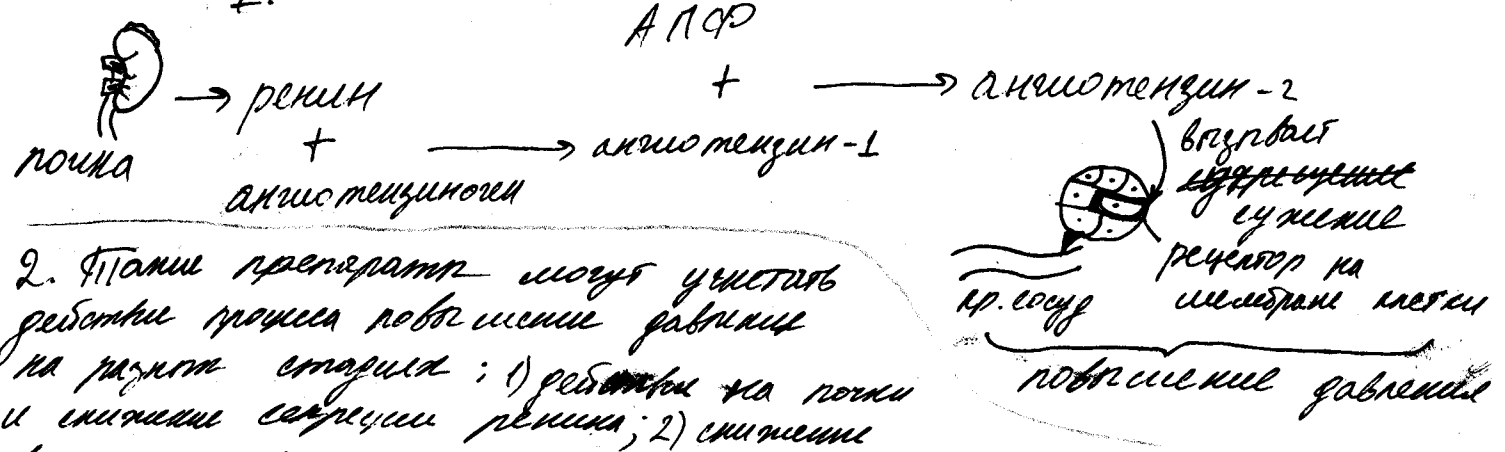 1.
АПФ
почка → ренин + → ангиотензин-2
+ → ангиотензин-1
ангиотензиноген
вызывает
сужение
рецептор на
кр. сосуд мембране клетки
повышение давления
2. Такие препараты могут угнетать
действие процесса повышение давления
на разных стадиях ; 1) действие на почки
и снижение секреции ренина; 2) снижение